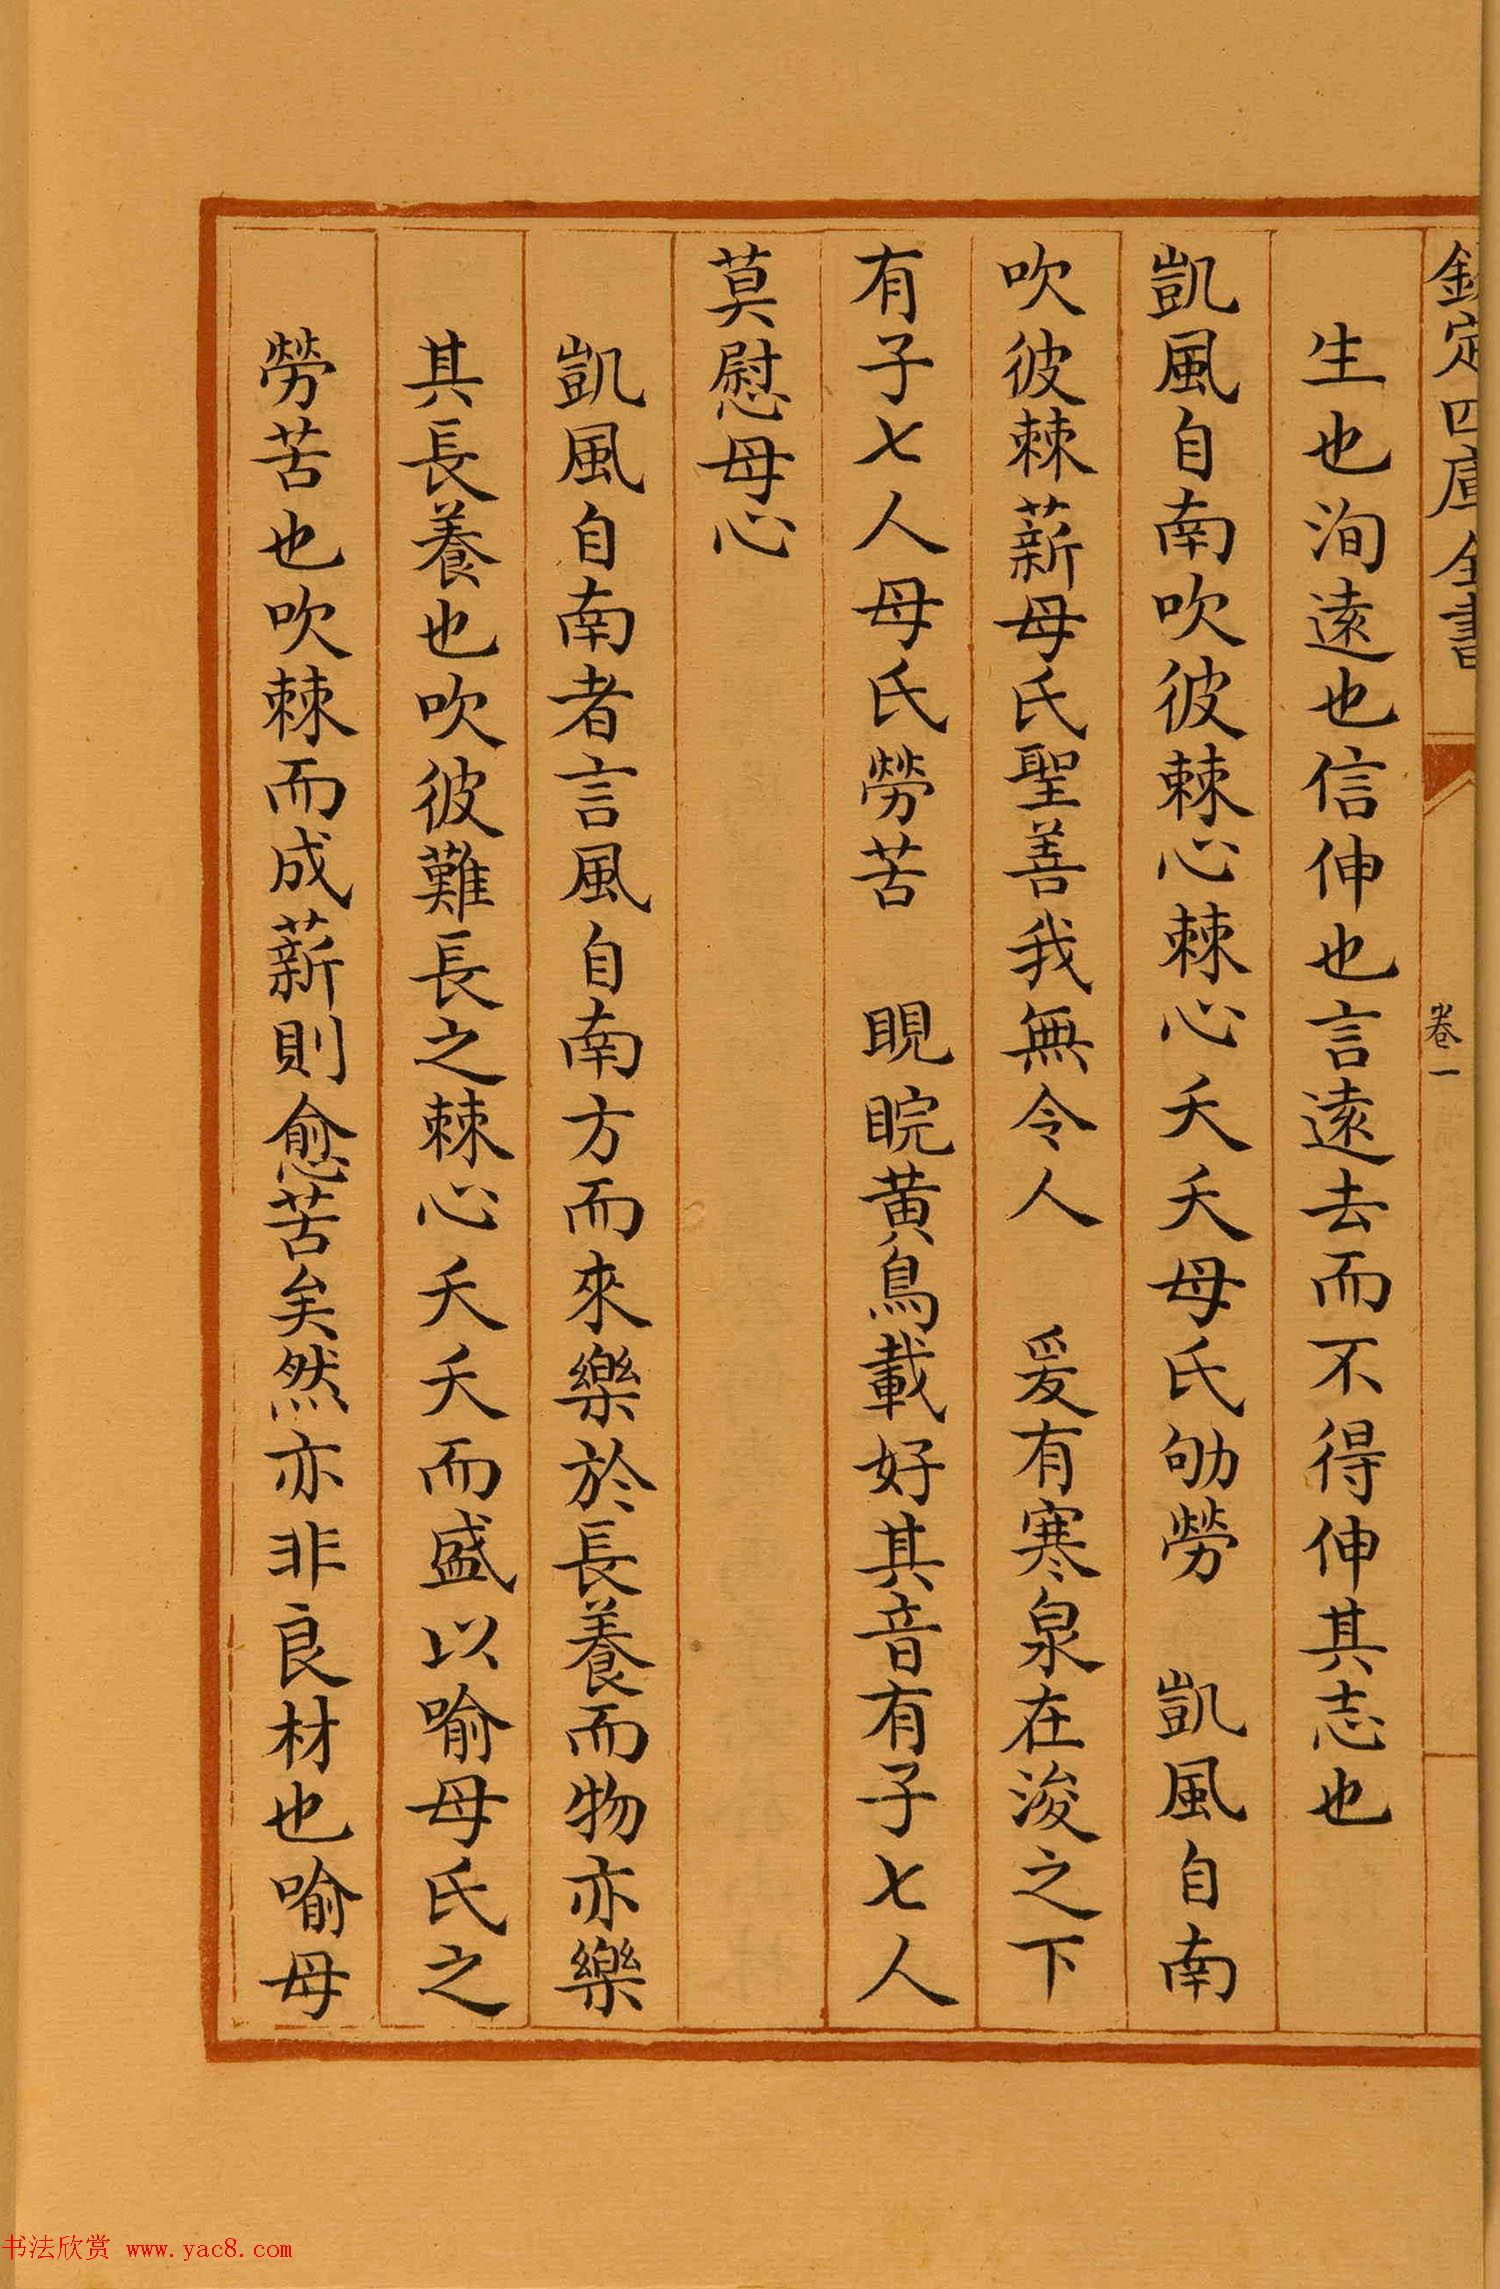 欽定四庫全書
卷一
生也洵遠也信伸也言遠去而不得伸其志也
凱風自南吹彼棘心棘心夭夭母氏劬勞　凱風自南
吹彼棘薪母氏聖善我無令人　爰有寒泉在浚之下
有子七人母氏勞苦　睍睆黃鳥載好其音有子七人
莫慰母心
凱風自南者言風自南方而來樂於長養而物亦樂
其長養也吹彼難長之棘心夭夭而盛以喻母氏之
勞苦也吹棘而成薪則愈苦矣然亦非良材也喻母
书法欣赏 www.yac8.com